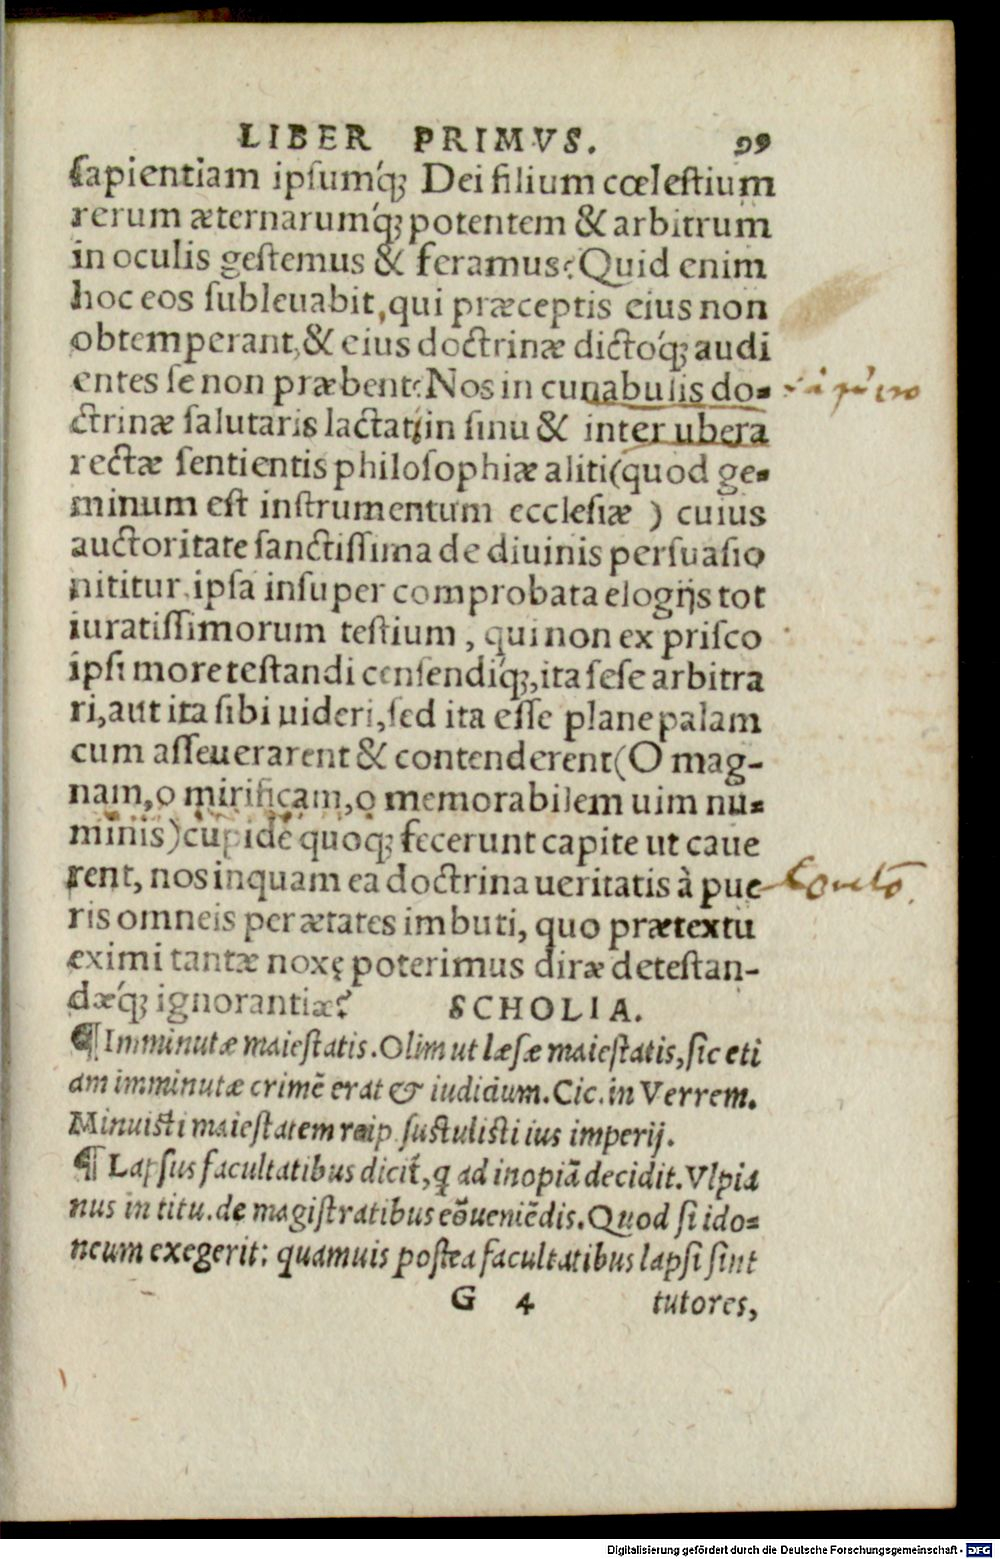 LIBER PRIMVS. 99
sapientiam ipsumq́; Dei filium cœlestium
rerum æternarumq́; potentem & arbitrum
in oculis gestemus & feramus? Quid enim
hoc eos subleuabit, qui præceptis eius non
obtemperant, & eius doctrinæ dictoq́; audi
entes se non præbent? Nos in cunabulis do-
ctrinæ salutaris lactati, in sinu & inter ubera
rectæ sentientis philosophiæ aliti (quod ge-
minum est instrumentum ecclesiæ ) cuius
auctoritate sanctissima de diuinis persuasio
nititur, ipsa insuper comprobata elogijs tot
iuratissimorum testium, qui non ex prisco
ipsi more testandi censendiq́;, ita sese arbitra
ri, aut ita sibi uideri, sed ita esse plane palam
cum asseuerarent & contenderent (O mag-
nam, o mirificam, o memorabilem uim nu-
minis) cupide quoq; fecerunt capite ut caue
rent, nos inquam ea doctrina ueritatis à pue
ris omneis per ætates imbuti, quo prætextu
eximi tantæ noxę poterimus diræ detestan-
dæq́; ignorantiæ? SCHOLIA.
¶ Imminutæ maiestatis. Olim ut læsæ maiestatis, sic eti
am imminutæ crimē erat & iudicium. Cic. in Verrem.
Minuisti maiestatem reip. sustulisti ius imperij.
¶ Lapsus facultatibus dicit̃, q ad inopiā decidit. Vlpia
nus in titu. de magistratibus cōueniēdis. Quod si ido-
neum exegerit: quamuis postea facultatibus lapsi sint
G 4 tutores,
Digitalisierung gefördert durch die Deutsche Forschungsgemeinschaft - DFG